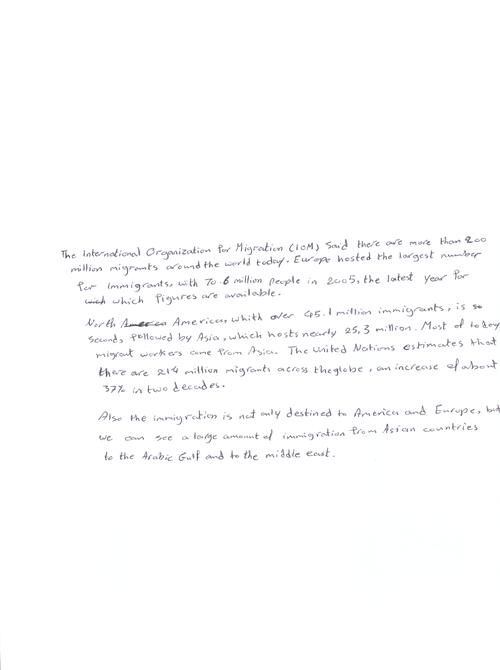 The International Organization for Migration (IOM) Said there are more than 200
million migrants around the world today. Europe hosted the largest number
for Immigrants, with 70.6 million people in 2005, the latest year for
which figures are available.
North America, whith over 45.1 million immigrants, is so
seconds, followed by Asia, which hosts nearly 25,3 million. Most of today
migrant workers come from Asia. The United Nations estimates that
there are 214 million migrants across theglobe, an increase of about
37% in two decades.
Also the immigration is not only destined to America and Europe, but
we can see a large amount of immigration from Asian countries
to the Arabic Gulf and to the middle east.